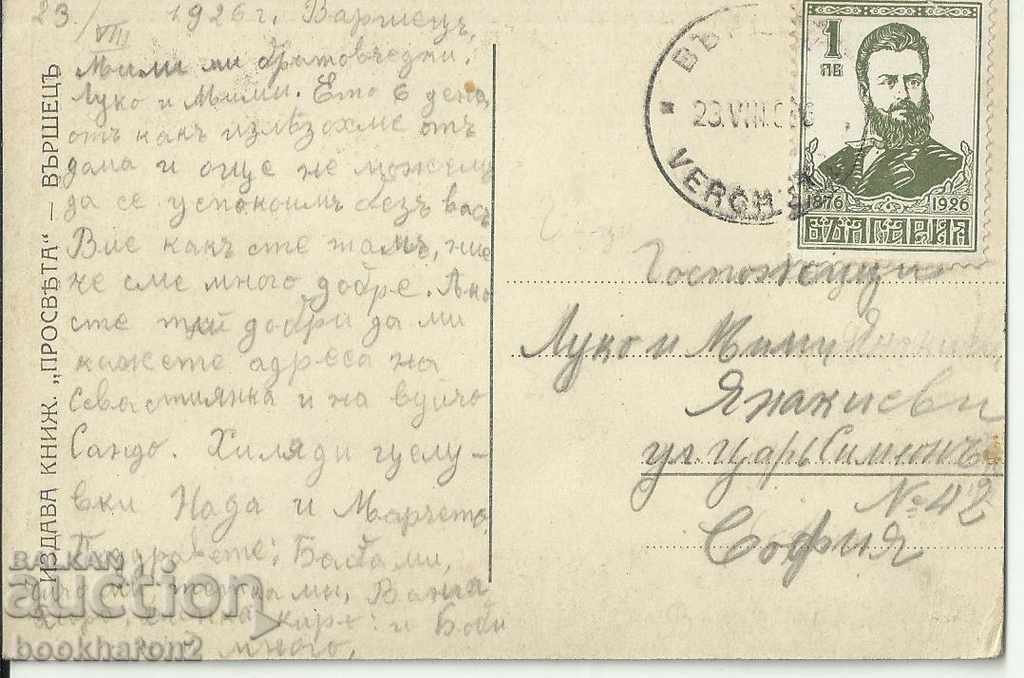 23./VIII 1926 г. Варшецъ,
Мили ми братовчедки,
Луко и Мими. Ето 6 дена
отъ какъ излѣзохме отъ
дома и още не можемъ
да се успокоимъ безъ васъ
Вие какъ сте тамъ, ние
же сме много добре. Ако
сте тъй добри да ми
кажете адреса на
Севастиянка и на вуйчо
Сандо. Хиляди целу-
вки Нада и Марчето
Поздравете: Баба ми,
ми, Ванчя
и Боби
много.
ИЗДАВА КНИЖ. „ПРОСВѢТА" – ВЪРШЕЦЪ
23.VIII
VERCHETZ
1 ЛВ
1876 1926
БЪЛГАРИЯ
Госпожици
Луко и Мими
Янакиеви
ул Царь Симеонъ
№ 42
София
BALKAN
auction
bookharon2